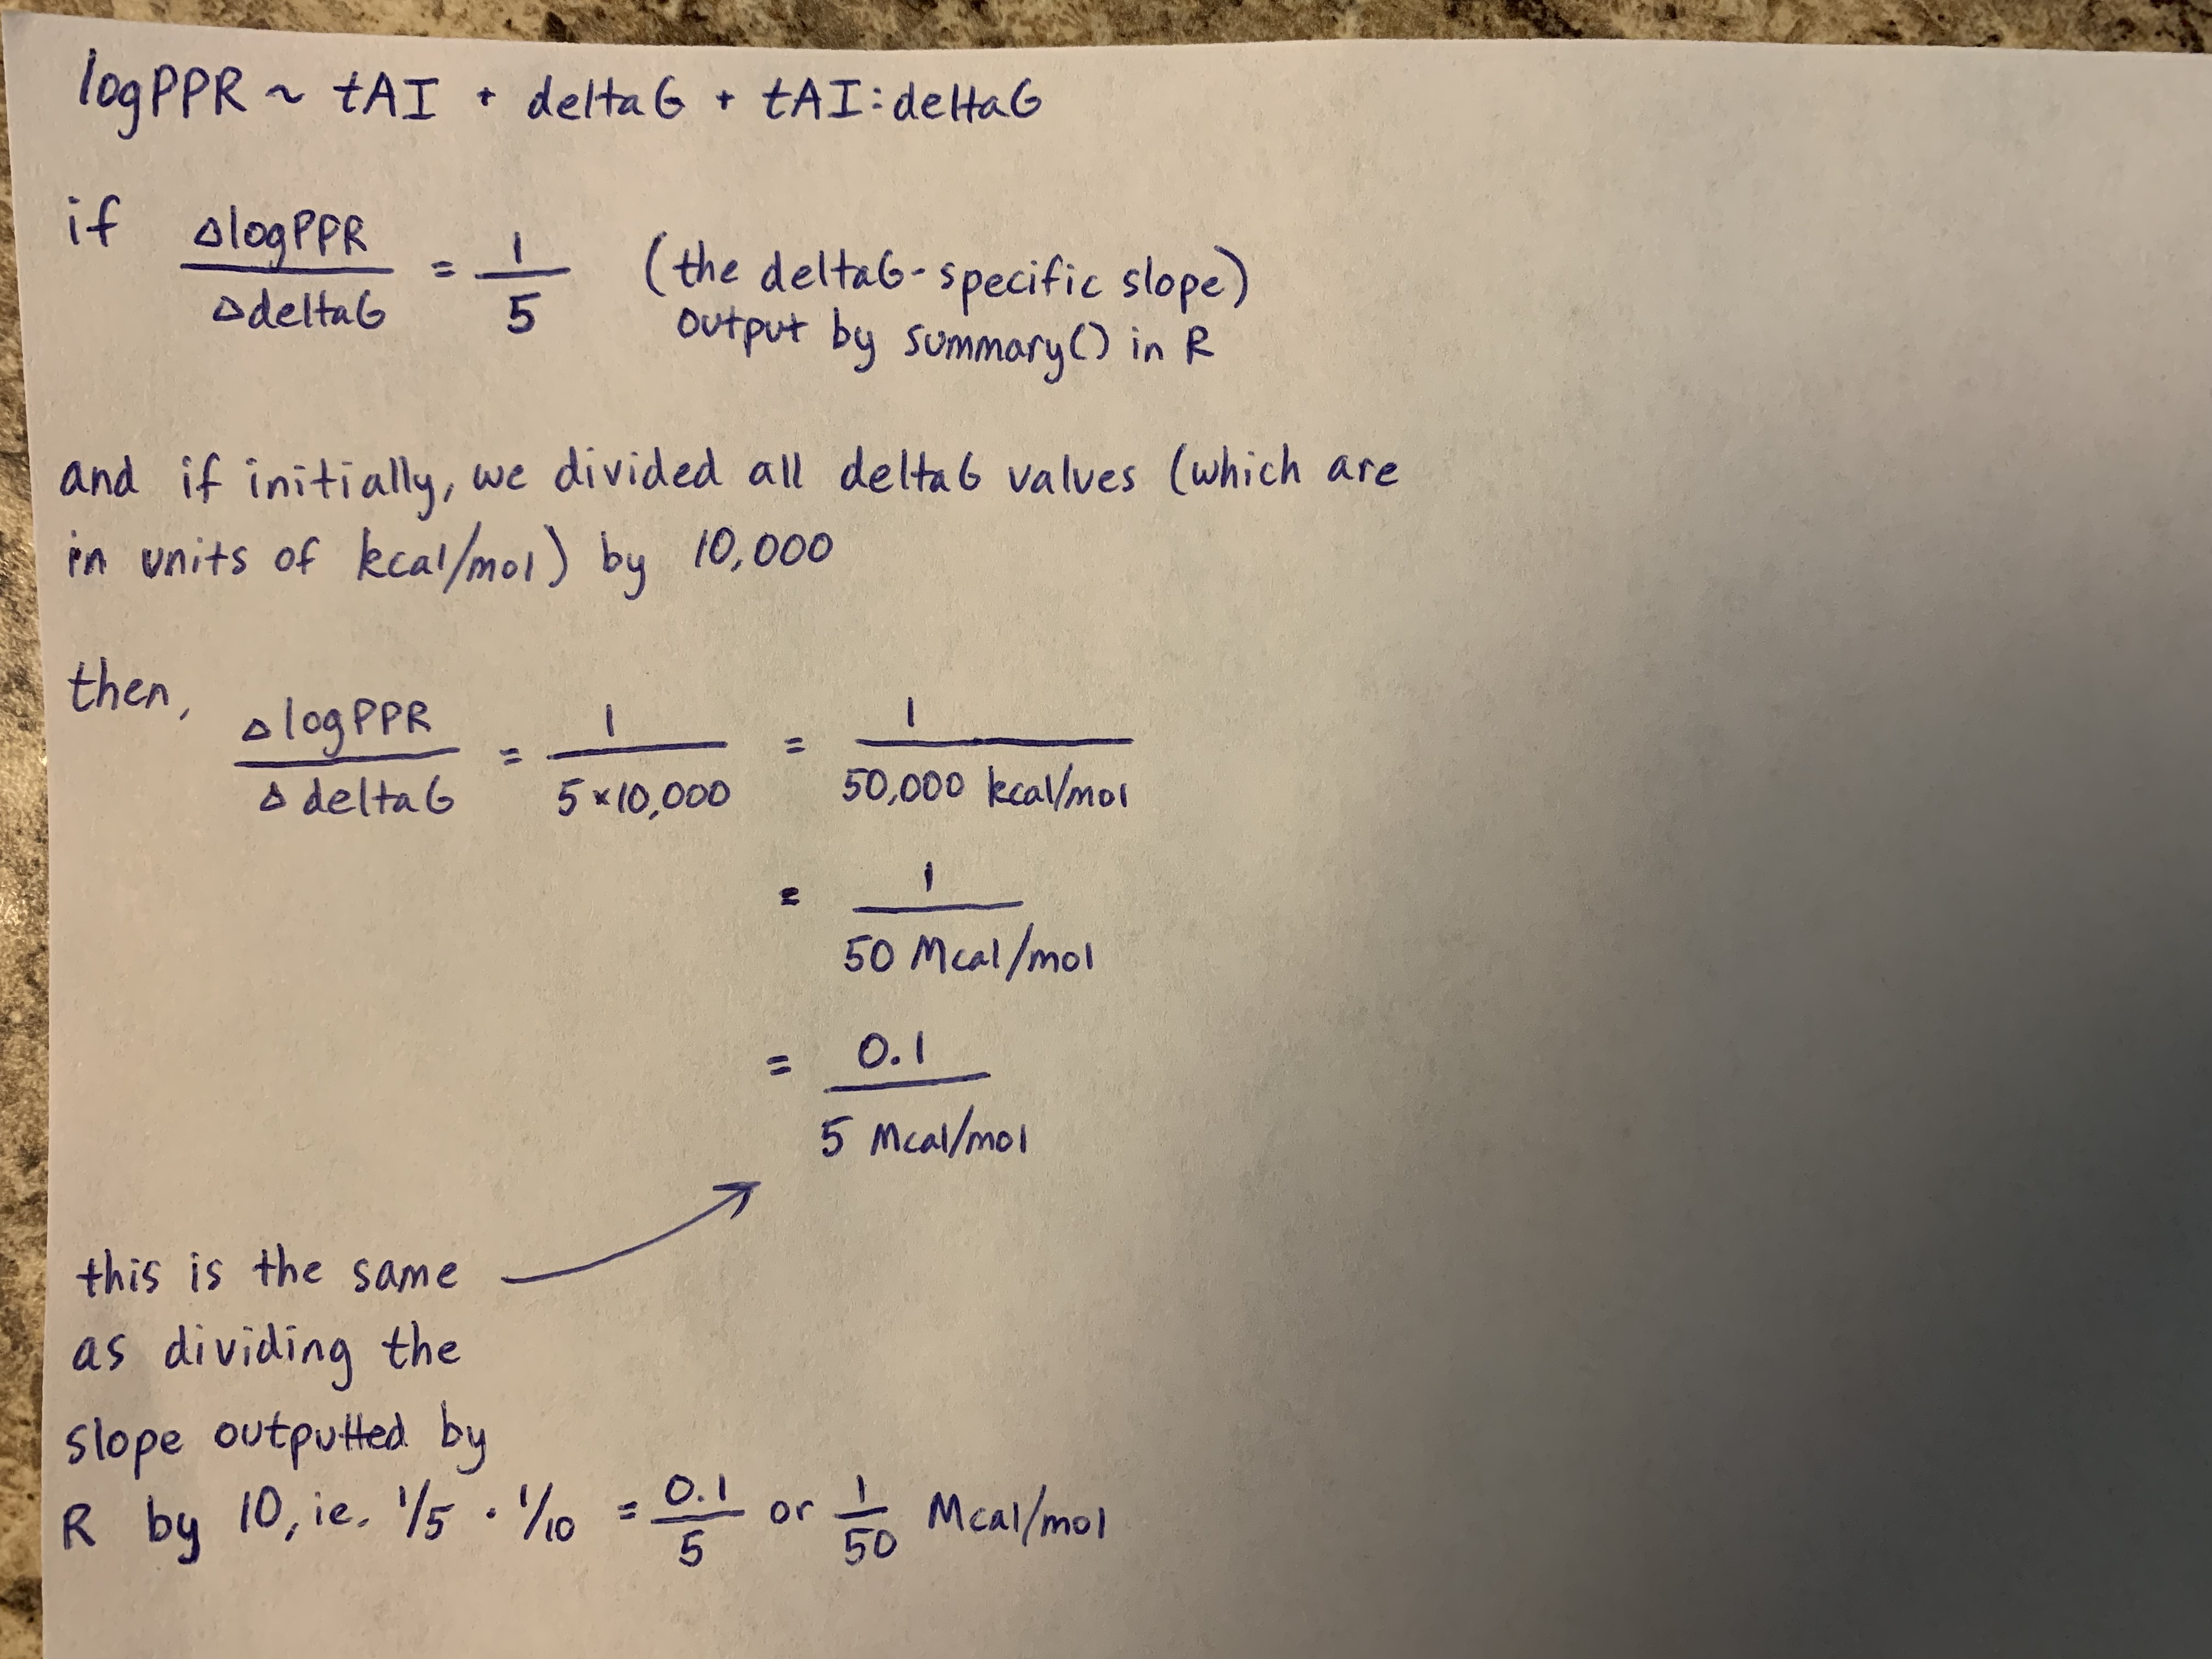 logPPR ~ tAI + deltaG + tAI:deltaG
if ΔlogPPR / ΔdeltaG = 1/5 (the deltaG-specific slope)
output by summary() in R
and if initially, we divided all deltaG values (which are
in units of kcal/mol) by 10,000
then, ΔlogPPR / ΔdeltaG = 1 / 5×10,000 = 1 / 50,000 kcal/mol
= 1 / 50 Mcal/mol
= 0.1 / 5 Mcal/mol
this is the same
as dividing the
slope outputted by
R by 10, ie. 1/5 · 1/10 = 0.1/5 or 1/50 Mcal/mol